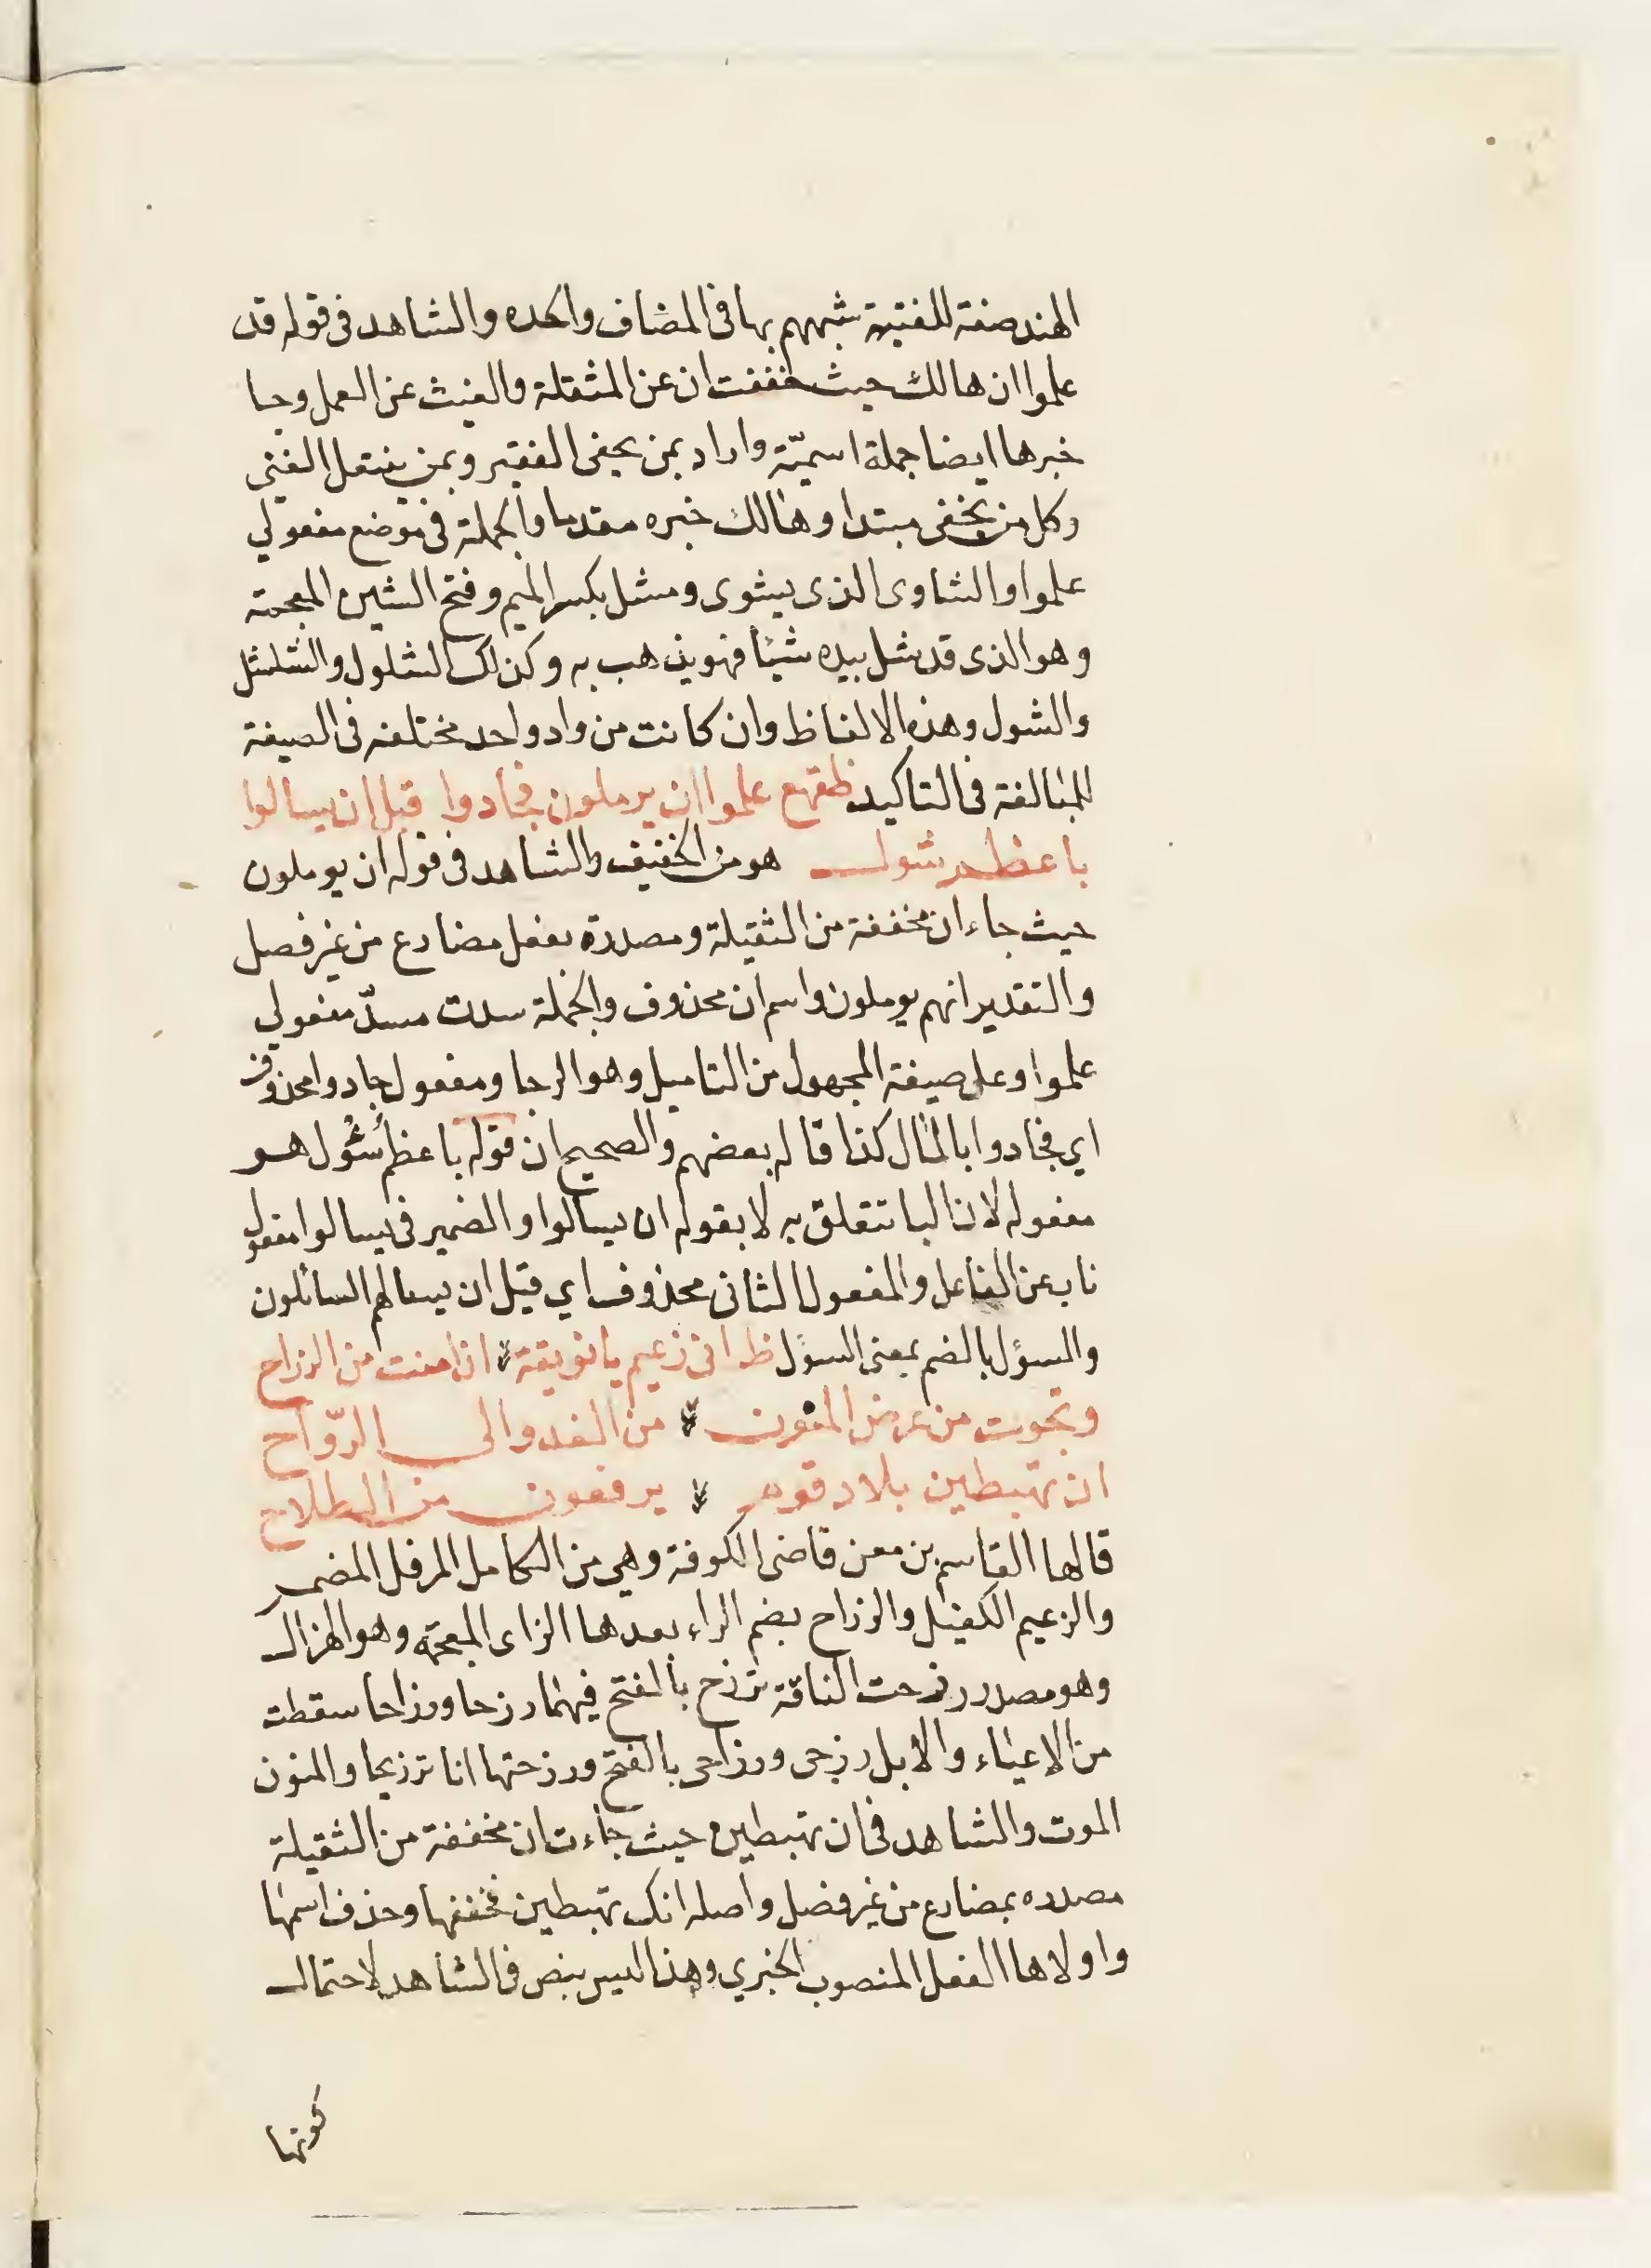 الهند صفة للفتية شبههم بها في المضاف والحده والشاهد في قوله قد
علموا ان هالك حيث خففت ان عن المثقلة والغيث عن العمل وجا
خبرها ايضا جملة اسميّة واراد بمن يحفى الفقير وبمن ينتعل الغنى
وكل من يحفى مبتدا وهالك خبره مقدما والجملة في موضع مفعولي
علموا والشاوى الذى يشوى ومشل بكسر الميم وفتح الشين المعجمة
وهو الذى قد شل بيده شيئا فهو يذهب به وكذلك الشلول والشلشل
والشول وهذه الالفاظ وان كانت من واد واحد مختلفه في الصيغة
للمبالغة في التاكيد ظقهع علموا ان يرملون فجادوا قبل ان يسالوا
باعظم سول هو من الخفيف والشاهد في قوله ان يوملون
حيث جاء ان مخففة من الثقيلة ومصدرة بفعل مضارع من غير فصل
والتقدير انهم يوملون واسم ان محذوف والجملة سدت مسدّ مفعولي
علموا وعلى صيغة المجهول من التاميل وهو الرجا ومفعول جادوا محذوف
اي فجادوا بالمال كذا قاله بعضهم والصحيح ان قوله باعظم سُؤل هو
مفعوله لان البا تتعلق به لا بقوله ان يسالوا والضمير في يسالوا مفعول
ناب عن الفاعل والمفعول الثانى محذوف اي قبل ان يسالهم السائلون
والسؤل بالضم بمعنى السؤل ظ انى زعيم يا نويقة ان امنت من الرزاح
ونجوت من عرض المنون من الغدو الى الروّاح
ان تهبطين بلاد قوم يرفعون من الطلاح
قالها القاسم بن معن قاضى الكوفة وهي من الكامل المرفل المضمر
والزعيم الكفيل والرزاح بضم الراء بعدها الزاى المعجمة وهو الهزال
وهو مصدر رزحت الناقة ترزح بالفتح فيهما رزحا ورزاحا سقطت
من الاعياء والابل رزحى ورزاحى بالفتح ورزحتها انا ترزيحا والمنون
الموت والشاهد في ان تهبطين حيث جاءت ان مخففة من الثقيلة
مصدره بمضارع من غير فصل واصله انك تهبطين فخففها وحذف اسمها
واولاها الفعل المنصوب الخبري وهذا ليس بنص في الشاهد لاحتمال
كونها